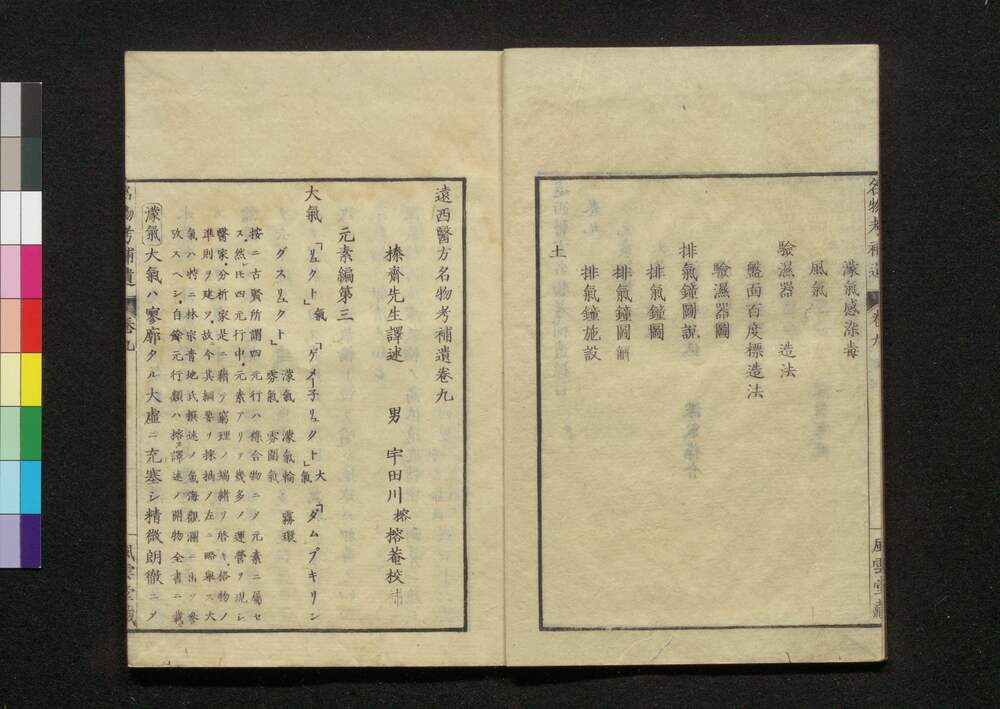 濛氣感染毒
風氣
驗濕器 造法
盤面百度標造法
驗濕器圖
排氣鐘圖説
排氣鐘圖
排氣鐘圖解
排氣鐘施設
土
名物考補遺 卷九
風雲堂藏
遠西醫方名物考補遺卷九
榛齋先生譯述 男 宇田川榕榕菴校補
元素編第三
大氣 「リュクト」氣 「ゲメー子リュクト」大氣 「ダムプキリン
グスリュクト」濛氣 濛氣輪 霧環 雰氣 雰圍氣
按ニ古賢所謂四元行ハ複合物ニノ元素ニ屬セ
ス然ヒ四元行中元素アリテ幾多ノ運營ヲ現シ
醫家分析家是ニ藉テ窮理ノ端緒ヲ啓キ格物ノ
準則ヲ建ツ故ニ今其綱要ヲ採摘ノ左ニ略擧ス大
氣ハ特ニ林宗青地氏譔述ノ氣海觀瀾ニ出ツ參
攷スヘシ自餘元行類ハ榕譯述ノ開物全書ニ載
濛氣 大氣ハ寥廓タル大虚ニ充塞シ精微朗徹ニノ
名物考補遺 卷九
風雲堂藏